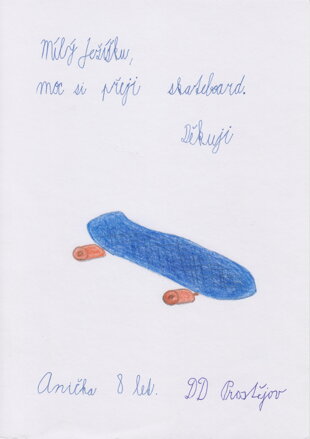 Milý Ježíšku,
moc si přeji skateboard.
Děkuji
Anička 8 let. DD Prostějov